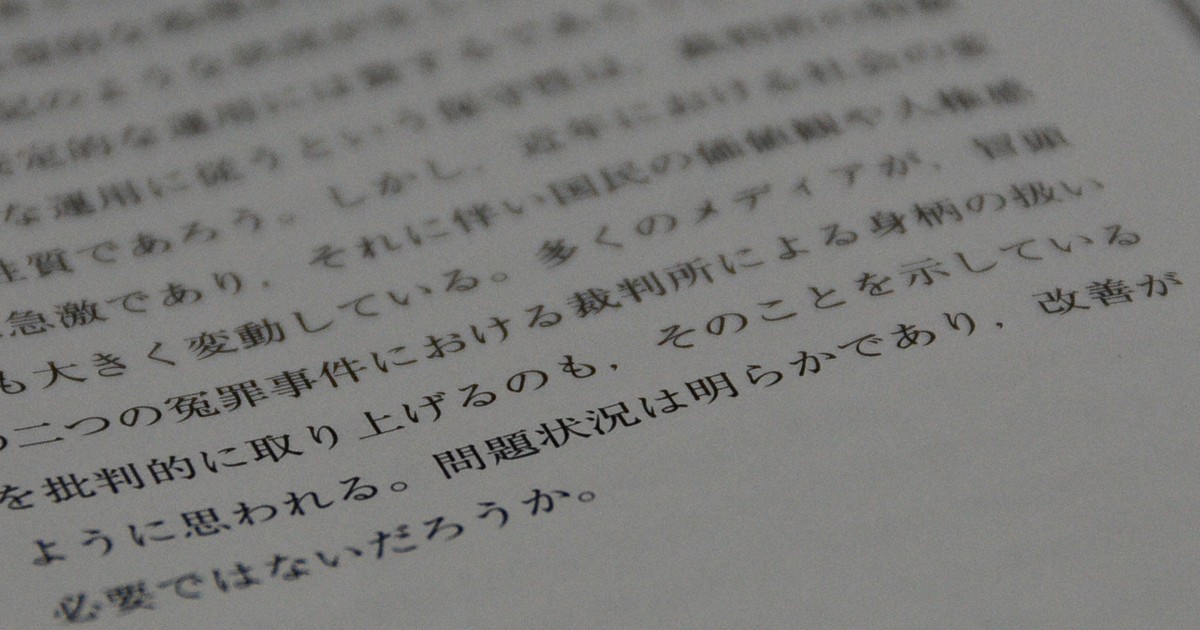 のような
定的な運用には資するであろう
な運用に従うという保守性は、裁判所の
性質であろう。しかし、近年における社会の変
急激であり、それに伴い国民の価値観や人権感
も大きく変動している。多くのメディアが、冒頭
の二つの冤罪事件における裁判所による身柄の扱い
を批判的に取り上げるのも、そのことを示している
ように思われる。問題状況は明らかであり、改善が
必要ではないだろうか。